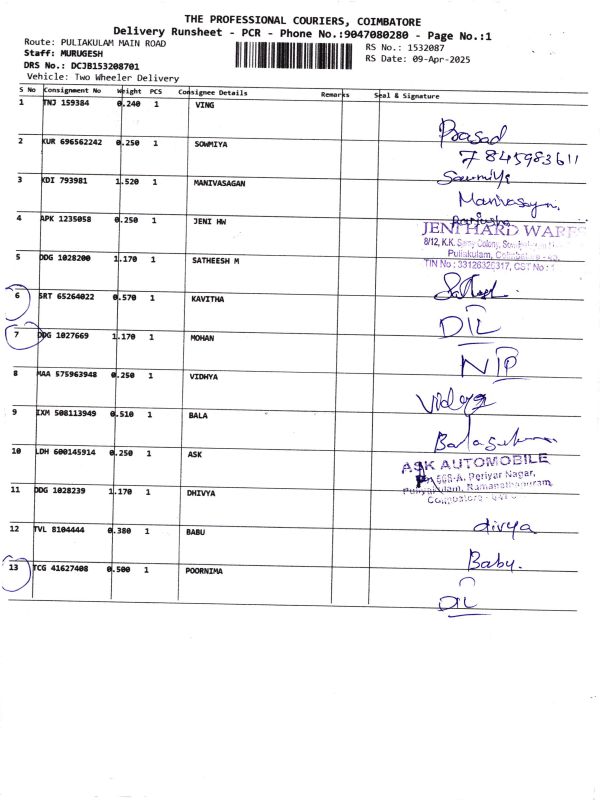 THE PROFESSIONAL COURIERS, COIMBATORE
Delivery Runsheet - PCR - Phone No.:9047080280 - Page No.:1
Route: PULIAKULAM MAIN ROAD
RS No.: 1532087
Staff: MURUGESH
RS Date: 09-Apr-2025
DRS No.: DCJB153208701
Vehicle: Two Wheeler Delivery
S No Consignment No Weight PCS Consignee Details Remarks Seal & Signature
1 TNJ 159384 0.240 1 VING
Prasad
7845983611
2 KUR 696562242 0.250 1 SOWMIYA
Sowmiya
3 KDI 793981 1.520 1 MANIVASAGAN
Manivasagan.
4 APK 1235058 0.250 1 JENI HW
JENI HARD WARES
8/12, K.K. Samy Colony,
Puliakulam,
TIN No : 33126320317, CST No :
5 DDG 1028200 1.170 1 SATHEESH M
6 SRT 65264022 0.570 1 KAVITHA
DIL
7 DDG 1027669 1.170 1 MOHAN
NIP
8 MAA 575963948 0.250 1 VIDHYA
Vidya
9 IXM 508113949 0.510 1 BALA
10 LDH 600145914 0.250 1 ASK
ASK AUTOMOBILE
Periyar Nagar,
Puliyakulam, Ramanathapuram,
Coimbatore
11 DDG 1028239 1.170 1 DHIVYA
divya
12 TVL 8104444 0.380 1 BABU
Baby.
13 TCG 41627408 0.500 1 POORNIMA
DIL